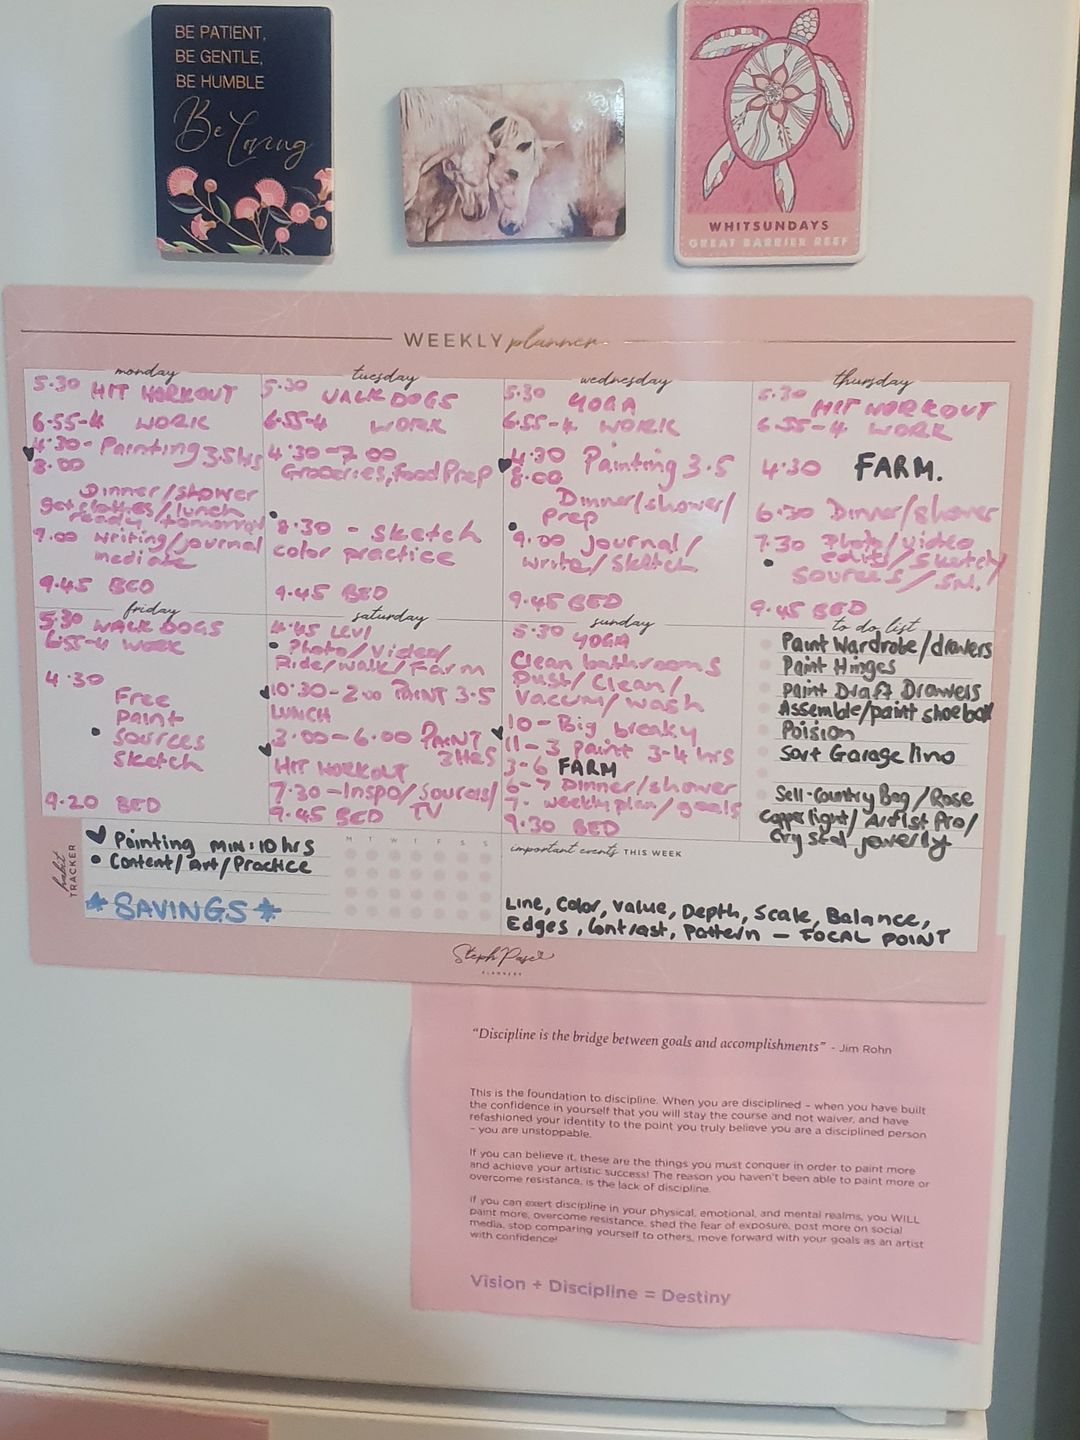 BE PATIENT,
BE GENTLE,
BE HUMBLE
Be Loving
WHITSUNDAYS
GREAT BARRIER REEF
WEEKLY planner
monday
5.30 HIT WORKOUT
6.55-4 WORK
4.30- Painting 3.5hrs
8.00
Dinner/shower
get clothes/lunch
ready tomorrow
9.00 writing/journal
mediate
9.45 BED
tuesday
5.30 WALK DOGS
6.55-4 WORK
4.30-7.00
Groceries, food Prep
8.30 - sketch
color practice
9.45 BED
wednesday
5.30 YOGA
6.55-4 WORK
4.30 Painting 3.5
8.00
Dinner/shower/
prep
9.00 journal/
write/sketch
9.45 BED
thursday
5.30 HIT WORKOUT
6.55-4 WORK
4.30 FARM.
6.30 Dinner/shower
7.30 Photo/video
edits/sketch/
sources/
9.45 BED
friday
5.30 WALK DOGS
6.55-4 WORK
4.30
Free
paint
sources
sketch
9.20 BED
saturday
4.45 LEVI
Photo/Video/
Ride/walk/Farm
10.30-2.00 PAINT 3.5
LUNCH
3.00-6.00 PAINT
3HRS
HIT WORKOUT
7.30-Inspo/sources/
9.45 BED TV
sunday
5.30 YOGA
Clean bathrooms
Dust/Clean/
Vacum/wash
10- Big breaky
11-3 paint 3-4 hrs
3-6 FARM
6-7 Dinner/shower
7- weekly plan/goals
9.30 BED
to do list
Paint Wardrobe/drawers
Paint Hinges
paint Draft Drawers
Assemble/paint shoebox
Poision
Sort Garage lino
Sell-Country Bag/Rose
Copper light/Artist Pro/
Crystal jewerlly
habit
TRACKER
Painting MIN:10 hrs
Content/Art/Practice
SAVINGS
M T W T F S S
important events THIS WEEK
Line, Color, Value, Depth, Scale, Balance,
Edges, Contrast, Pattern - FOCAL POINT
Steph Pase
PLANNERS
"Discipline is the bridge between goals and accomplishments" - Jim Rohn
This is the foundation to discipline. When you are disciplined - when you have built
the confidence in yourself that you will stay the course and not waiver, and have
refashioned your identity to the point you truly believe you are a disciplined person
- you are unstoppable.
If you can believe it, these are the things you must conquer in order to paint more
and achieve your artistic success! The reason you haven't been able to paint more or
overcome resistance, is the lack of discipline.
If you can exert discipline in your physical, emotional, and mental realms, you WILL
paint more, overcome resistance, shed the fear of exposure, post more on social
media, stop comparing yourself to others, move forward with your goals as an artist
with confidence!
Vision + Discipline = Destiny